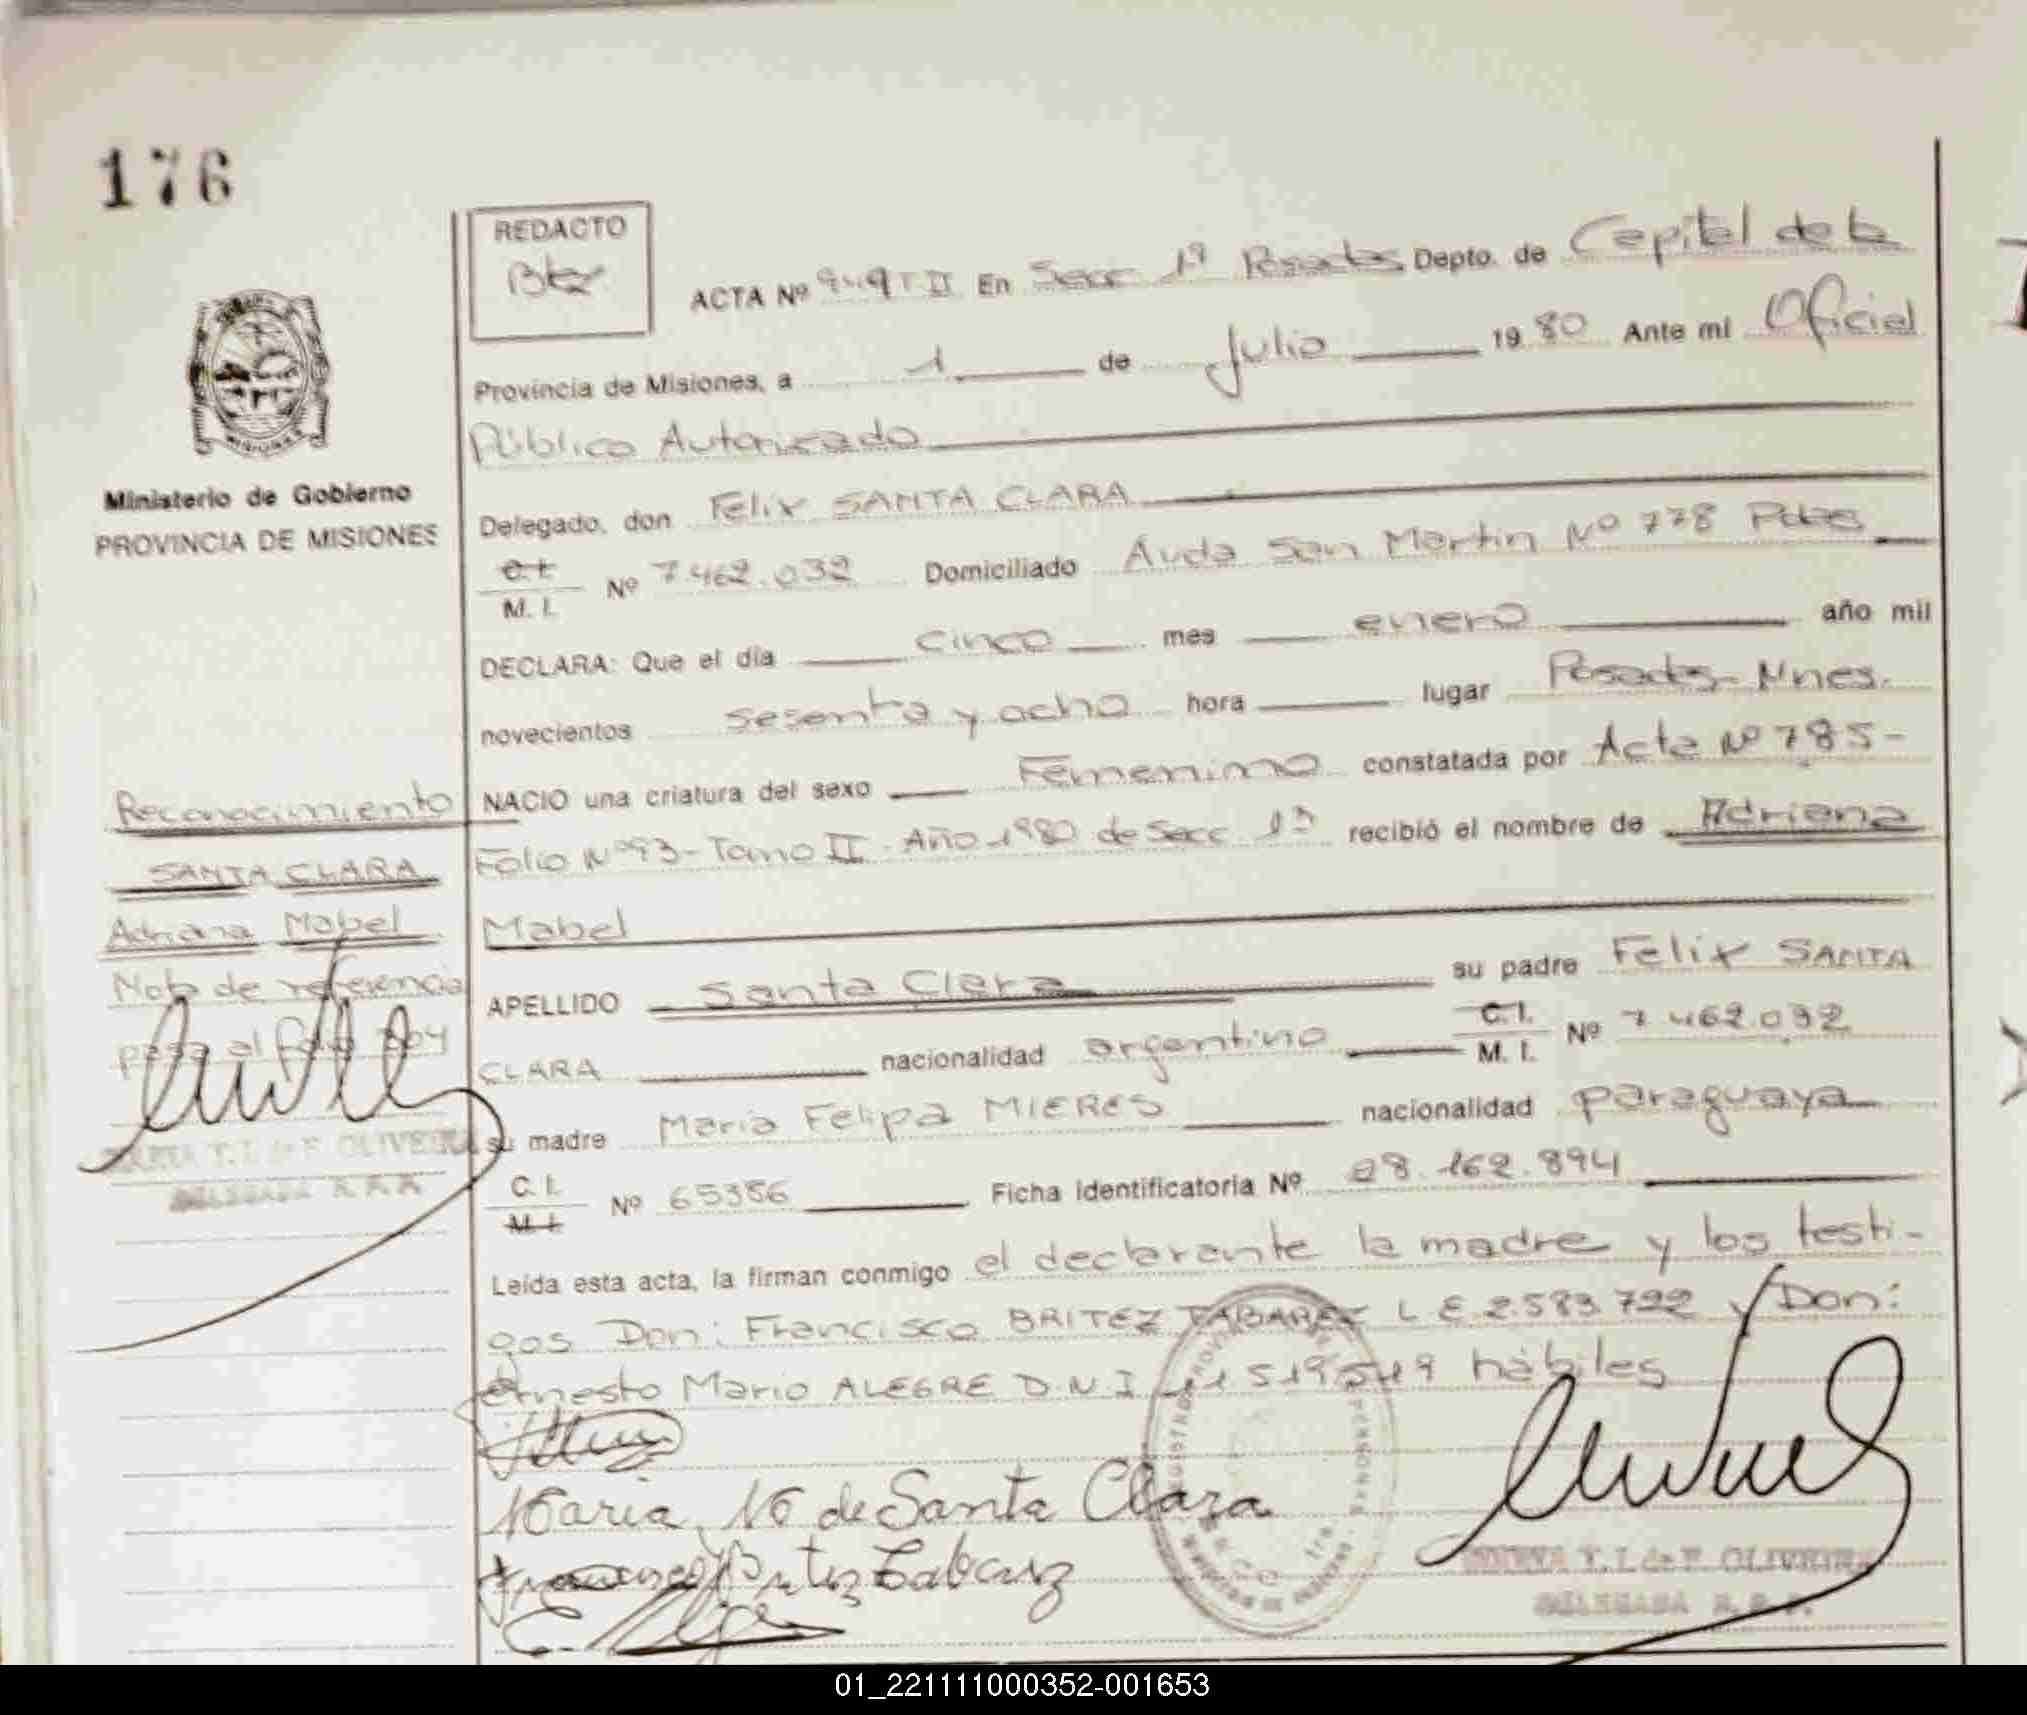 176
REDACTO
ACTA Nº 949 T II En Secc 1ª Posadas Depto. de Capital de la
Provincia de Misiones, a 1 de Julio 19 80 Ante mí Oficial
Público Autorizado
Ministerio de Gobierno
PROVINCIA DE MISIONES
Delegado, don Felix SANTA CLARA
C.I.
M. I. Nº 7.462.032 Domiciliado Avda San Martin Nº 778 Pdas
DECLARA: Que el día cinco mes enero año mil
novecientos sesenta y ocho hora lugar Posadas-Mnes.
NACIO una criatura del sexo Femenimo constatada por Acta Nº 785-
Folio Nº 93-Tomo II. Año 1980 de Secc 1ª recibió el nombre de Adriana
Mabel
APELLIDO Santa Clara su padre Felix SANTA
CLARA nacionalidad argentino C.I. M. I. Nº 7 462.032
su madre Maria Felipa MIERES nacionalidad paraguaya
C. I.
M. I. Nº 65356 Ficha Identificatoria Nº 28.162.894
Leída esta acta, la firman conmigo el declarante la madre y los testi-
gos Don: Francisco BRITEZ TABAREZ L E 2.583.722 y Don:
Ernesto Mario ALEGRE D.N.I 11 519 519 hábiles
Reconocimiento
SANTA CLARA
Adriana Mabel
Nota de referencia
pasa al folio
T. I. de F. OLIVEIRA
DELEGADA
Maria M de Santa Clara
Francisco Britez Tabarez
T. I. de F. OLIVEIRA
DELEGADA
01_221111000352-001653